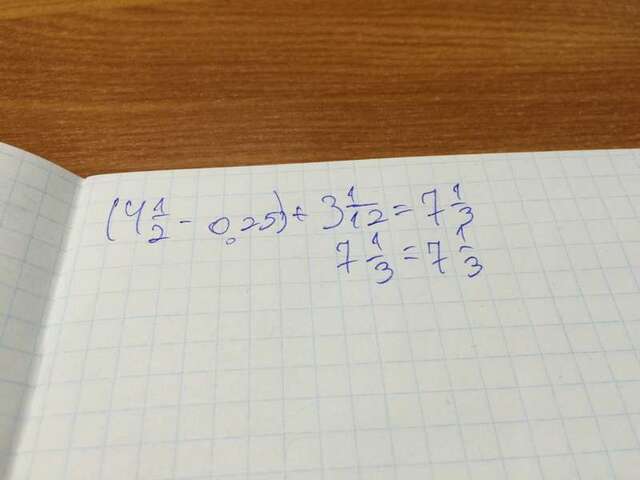 (4 1/2 - 0,25) + 3 1/12 = 7 1/3
7 1/3 = 7 1/3